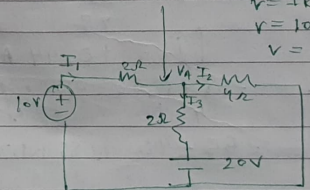 V = 10
V =
I₁
2Ω
V_A
I₂
4Ω
10V
+
−
I₃
2Ω
20V